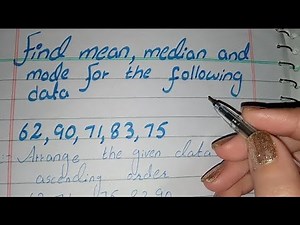 Find mean, median and
mode for the following
data
62, 90, 71, 83, 75
Arrange the given data
ascending order
62, 71, 75, 83, 90